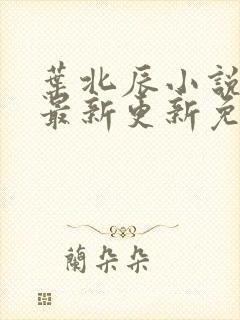 葉北辰小說
最新更新免
蘭朵朵